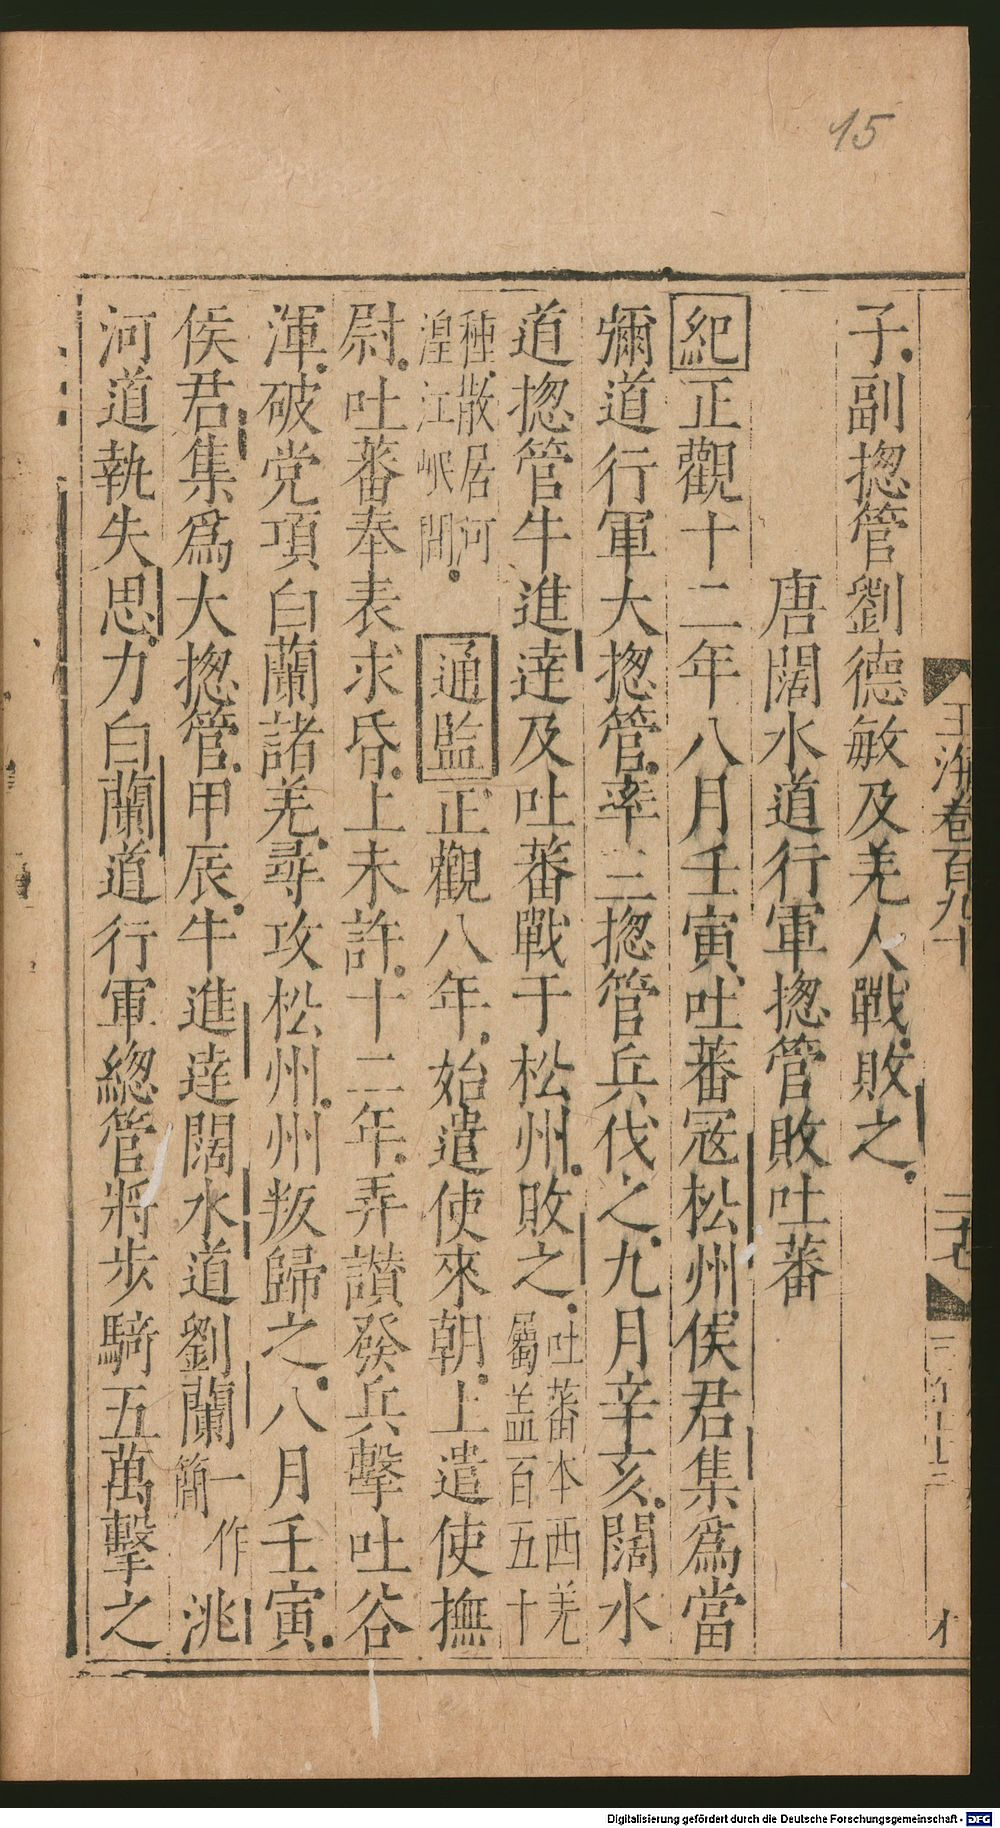 15
玉海卷百九十
二十七
子副揔管劉德敏及羌人戰敗之
唐闊水道行軍揔管敗吐蕃
紀正觀十二年八月壬寅吐蕃宼松州侯君集爲當
彌道行軍大揔管率三揔管兵伐之九月辛亥闊水
道揔管牛進達及吐蕃戰于松州敗之吐蕃本西羌
屬盖百五十
種散居河
湟江岷間
通監正觀八年始遣使來朝上遣使撫
尉吐蕃奉表求昏上未許十二年弄讃發兵擊吐谷
渾破党項白蘭諸羌尋攻松州州叛歸之八月壬寅
侯君集爲大揔管甲辰牛進達闊水道劉蘭一作
簡
洮
河道執失思力白蘭道行軍緫管將步騎五萬擊之
Digitalisierung gefördert durch die Deutsche Forschungsgemeinschaft - DFG